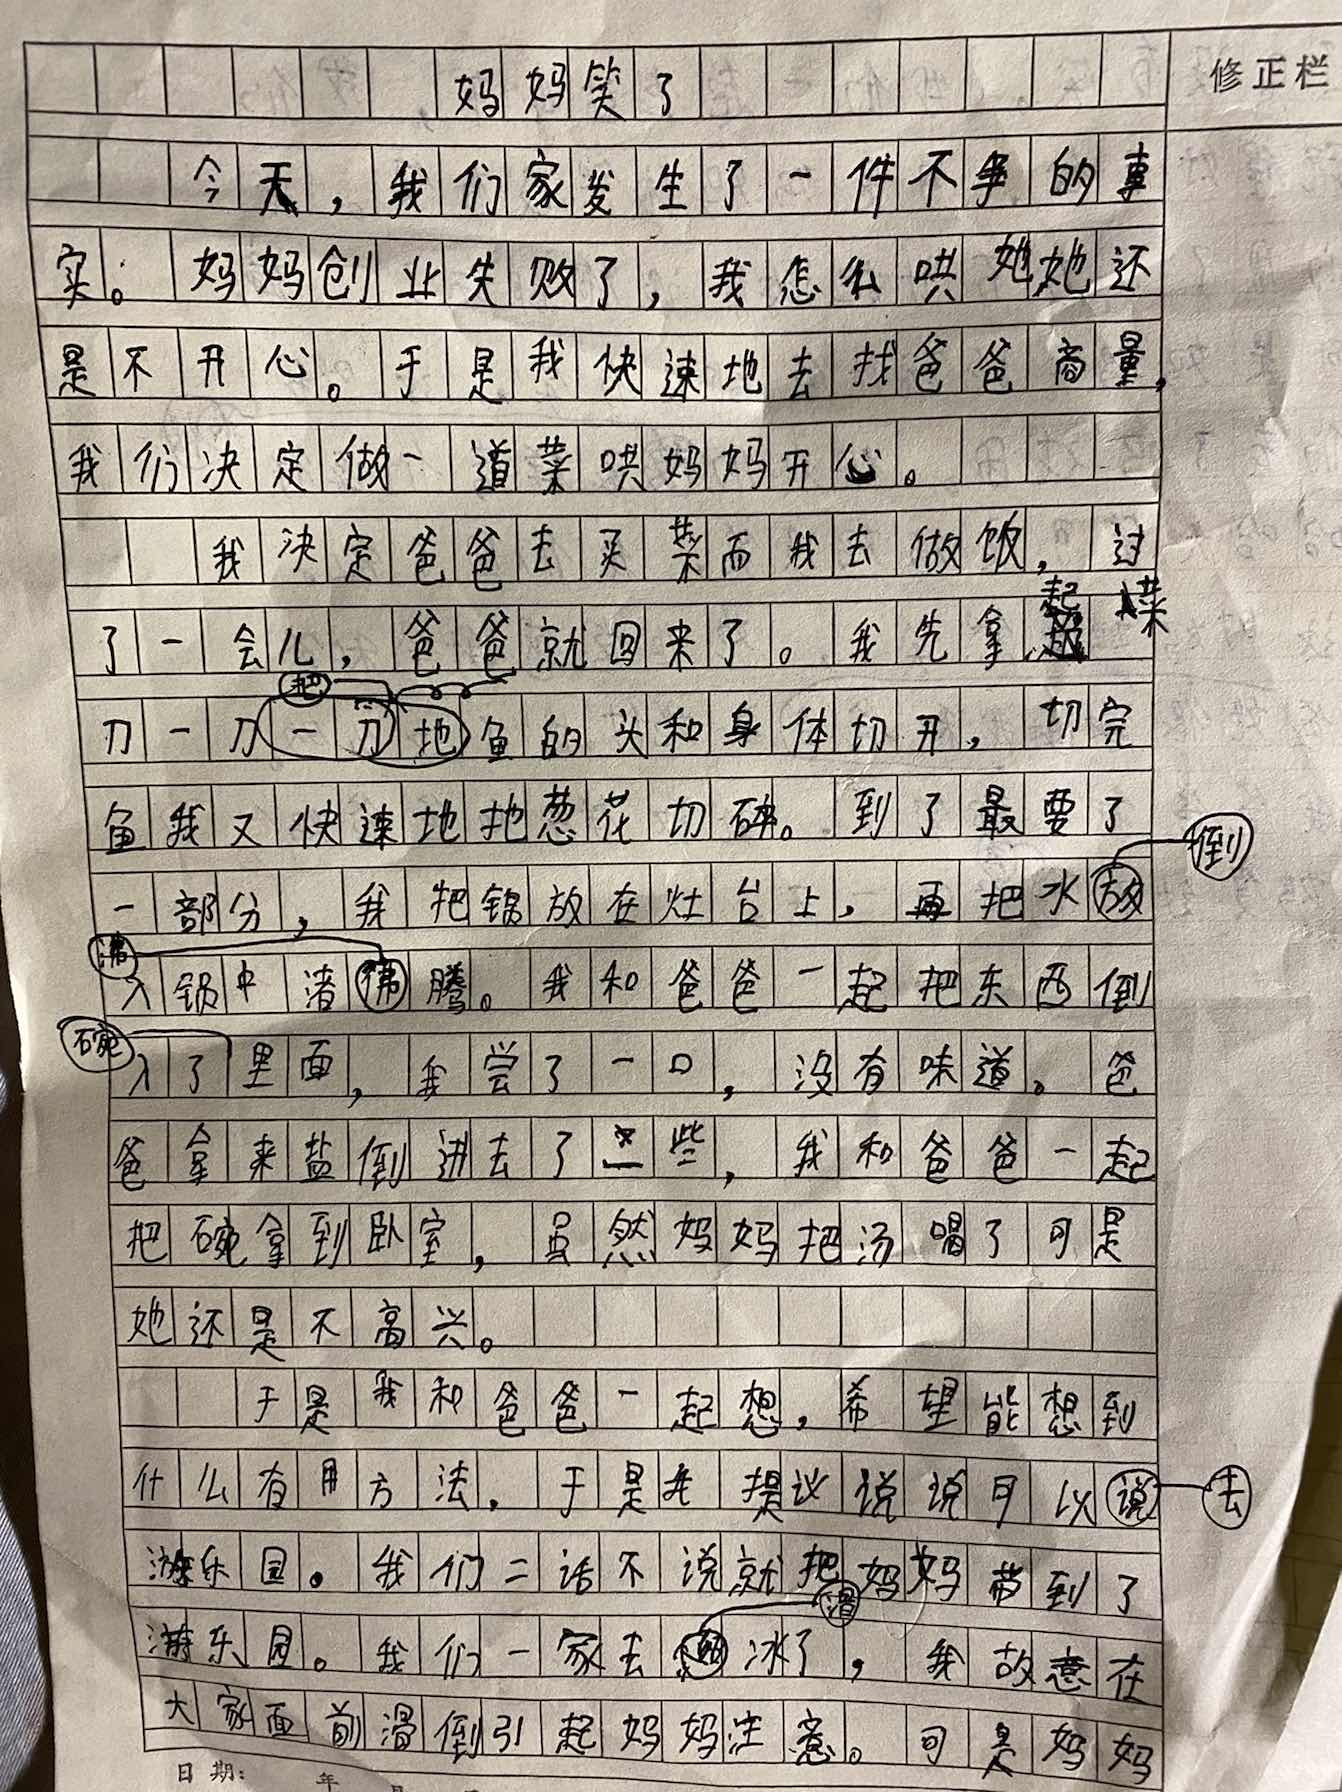 修正栏
妈妈笑了
今天，我们家发生了一件不争的事
实。妈妈创业失败了，我怎么哄她她还
是不开心。于是我快速地去找爸爸商量，
我们决定做一道菜哄妈妈开心。
我决定爸爸去买菜而我去做饭，过
了一会儿，爸爸就回来了。我先拿起菜
把
刀一刀一刀地鱼的头和身体切开，切完
鱼我又快速地把葱花切碎。到了最要了
倒
一部分，我把锅放在灶台上，再把水放
沸
入锅中渚沸腾。我和爸爸一起把东西倒
碗
入了里面，我尝了一口，没有味道。爸
爸拿来盐倒进去了一些，我和爸爸一起
把碗拿到卧室，虽然妈妈把汤喝了可是
她还是不高兴。
于是我和爸爸一起想，希望能想到
什么有用方法，于是我提议说说可以说
去
游乐园。我们二话不说就把妈妈带到了
滑
游乐园。我们一家去冰了，我故意在
大家面前滑倒引起妈妈注意。可是妈妈
日期： 年 月